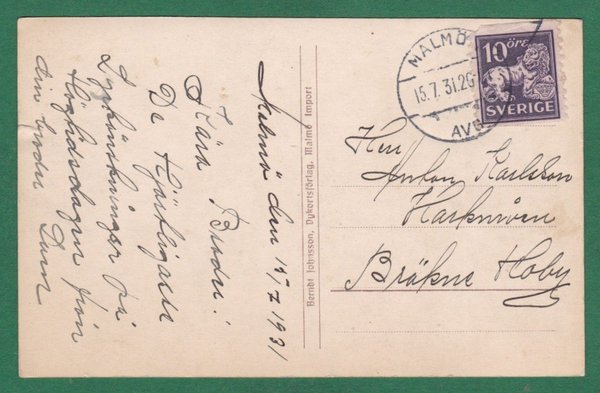 Malmö den 15/7 1931
Kära Broder!
De Hjärtligaste
Lyckönskningar på
Högtidsdagen från
din broder
Berndt Johnsson, Vykortsförlag, Malmö Import
MALMÖ
15.7.31.20
AVG
10 öre
SVERIGE
Herr
Anton Karlsson
Bräkne Hoby